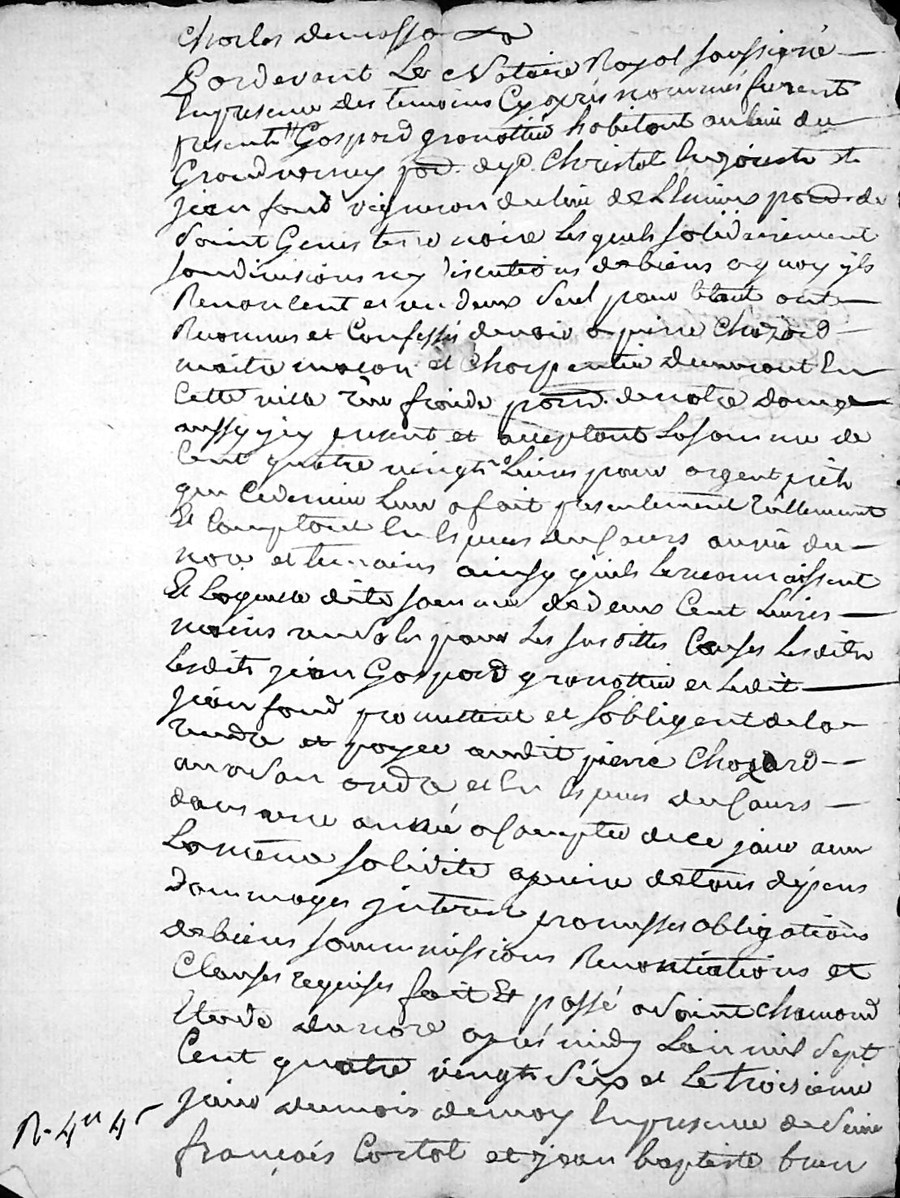 Charles demasso
Pardevant Le Notaire Royal soussigné
En presence des temoins Cy après nommés furent
presents Gaspard granottier habitant au lieu du
Grand parr. de St Christot En jarest et
jean fond vigneron du lieu de parr. de
Saint Genis terre noire Lesquels solidairement
sans division ny discutions de biens a quoy ils
Renoncent et un deux seul pour Le tout ont
Reconnus et Confessés devoir a pierre Chazard
maitre maçon et Charpentier demeurant En
Cette ville rue froide parr. de notre dame
aussy icy present et acceptant La somme de
Cent quatre vingt Livres pour argent prêté
que Ce dernier Leur a fait presentement réellement
Et Comptant En Especes du Cours au vû du
nore et temoins ainsy quils Le reconnaissent
Et Laquelle dite somme de deux Cent Livres
moins vals pour Les susdittes Causes Lesdits
Lesdits jean Gaspard granottier et Ledit
jean fond promettent et s'obligent de La
rendre et payer audit pierre Chazard
a son ordre et En Especes du Cours
dans une année a Compter de ce jour avec
La même solidité a peine de tous dépens
dommages interest promesses obligations
de biens soummissions Renontiations et
Clauses requises fait Et passé a Saint chamond
Etude du nore après midy L'an mil sept
Cent quatre vingt six et Le troisieme
jour du mois de may En presence de Sieur
françois Cartal et jean baptiste brun
R. 4ll 4s